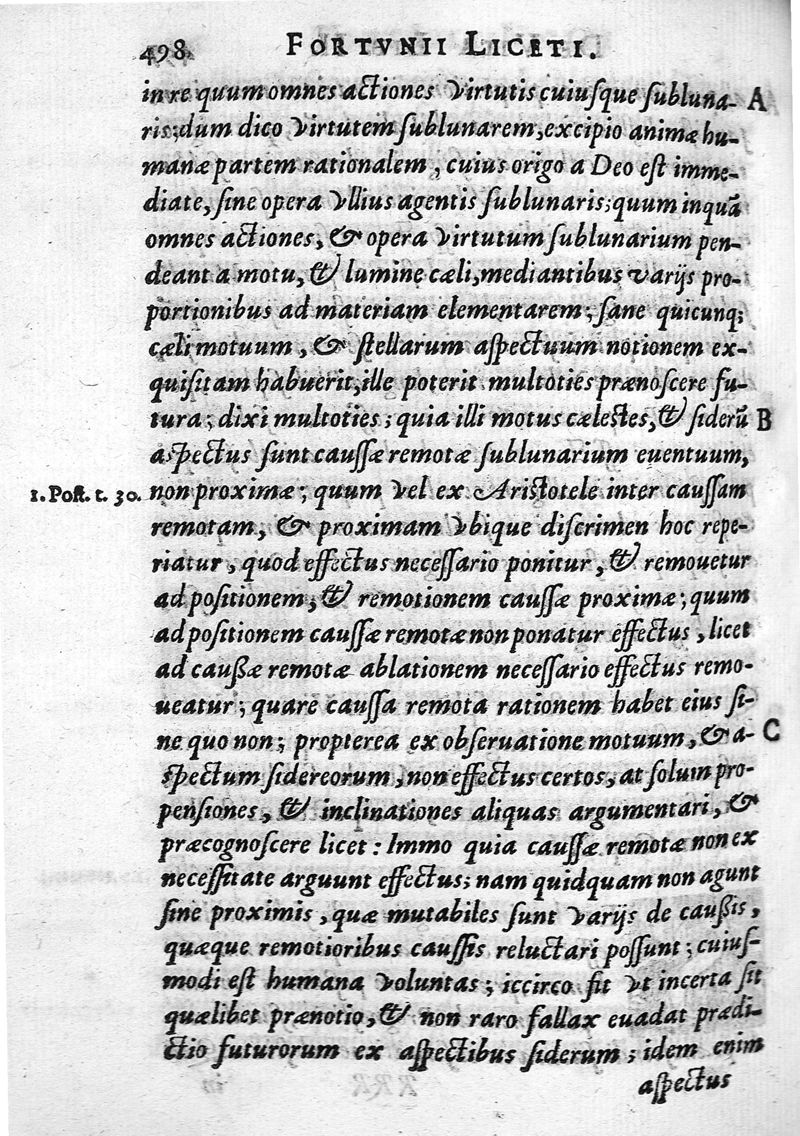 498. FORTVNII LICETI.
in re quum omnes actiones virtutis cuiuſque ſubluna- A
ris; dum dico virtutem ſublunarem, excipio animæ hu-
manæ partem rationalem, cuius origo a Deo eſt imme-
diate, ſine opera vllius agentis ſublunaris; quum inquā
omnes actiones, & opera virtutum ſublunarium pen-
deant a motu, & lumine cæli, mediantibus varijs pro-
portionibus ad materiam elementarem; ſane quicunq;
cæli motuum, & ſtellarum aſpectuum notionem ex-
quiſitam habuerit, ille poterit multoties prænoſcere fu-
tura; dixi multoties; quia illi motus cæleſtes, & siderū B
aſpectus ſunt cauſſæ remotæ ſublunarium euentuum,
1. Poſt. t. 30. non proximæ; quum vel ex Ariſtotele inter cauſſam
remotam, & proximam vbique diſcrimen hoc repe-
riatur, quod effectus neceſſario ponitur, & remouetur
ad poſitionem, & remotionem cauſſæ proximæ; quum
ad poſitionem cauſſæ remotæ non ponatur effectus, licet
ad caußæ remotæ ablationem neceſſario effectus remo-
ueatur; quare cauſſa remota rationem habet eius ſi-
ne quo non; propterea ex obſeruatione motuum, & a- C
ſpectum ſidereorum, non effectus certos, at ſolum pro-
penſiones, & inclinationes aliquas argumentari, &
præcognoſcere licet: Immo quia cauſſæ remotæ non ex
neceſſitate arguunt effectus; nam quidquam non agunt
ſine proximis, quæ mutabiles ſunt varijs de caußis,
quæque remotioribus cauſſis reluctari poſſunt; cuiuſ-
modi eſt humana voluntas; iccirco fit vt incerta ſit
quælibet prænotio, & non raro fallax euadat prædi-
ctio futurorum ex aſpectibus ſiderum; idem enim
aſpectus